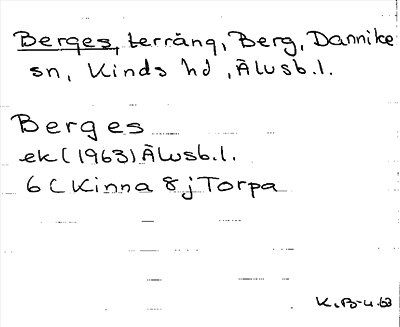 Berges, terräng, Berg, Dannike
sn, Kinds hd, Älvsb.l.
Berges
ek (1963) Älvsb.l.
6 C Kinna 8 j Torpa
K.B-u.63